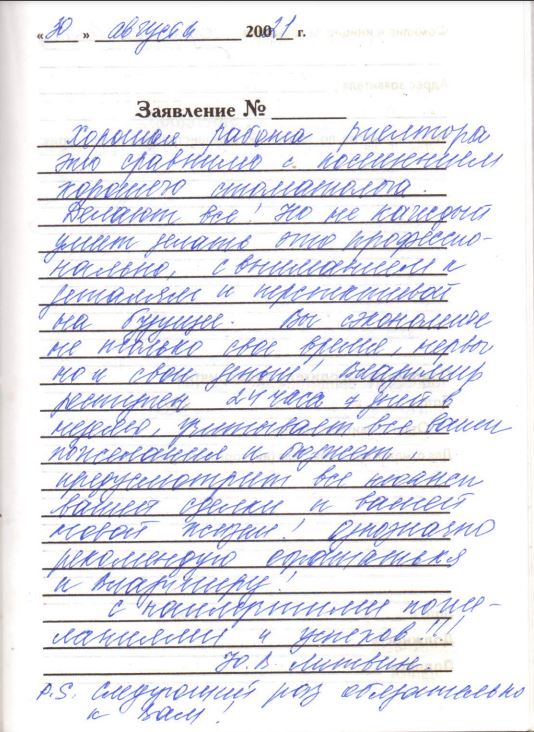 «30» августа 20021 г.
Заявление №
Хорошая работа риелтора
это сравнимо с посещением
хорошего стоматолога.
Делают все! Но не каждый
умеет делать это профессио-
нально, с вниманием к
деталям и перспективой
на будущее. Вы сэкономите
не только свое время, нервы
но и свои деньги. Владимир
доступен 24 часа 7 дней в
неделю, учитывает все ваши
пожелания и бюджет
предусмотрит все нюансы
вашей сделки и вашей
новой жизни! Однозначно
рекомендую обращаться
к Владимиру!
с наилучшими поже-
ланиями и успехов!!!
Ю.В. Литвин
P.S. Следующий раз обязательно
к Вам!